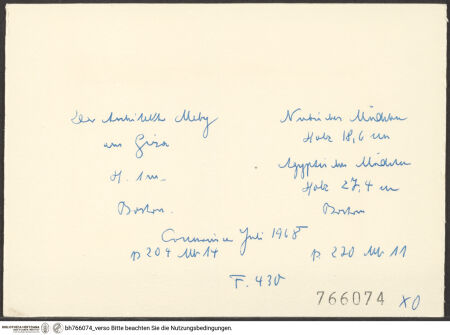 Der Architekt Mehy
aus Giza
H. 1 m.
Boston.
Nubisches Mädchen
Holz 18,6 cm
Ägyptisches Mädchen
Holz 27,4 cm
Boston
Connaissance Juli 1968
p 204 Nb 14
p 220 Nb 11
F. 430
766074 XO
BIBLIOTHECA HERTZIANA
bh766074_verso Bitte beachten Sie die Nutzungsbedingungen.